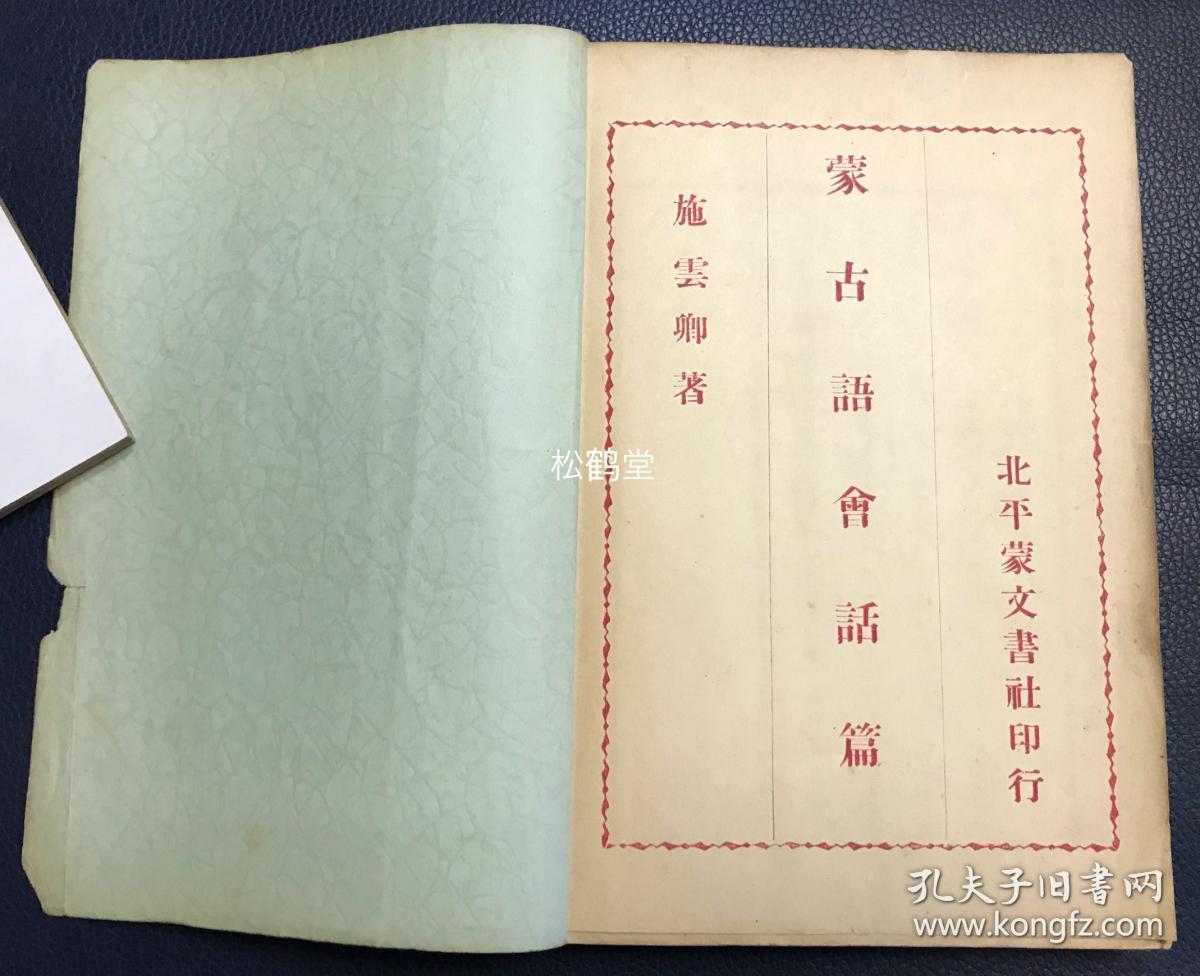 蒙古語會話篇
施雲卿著
北平蒙文書社印行
松鹤堂
孔夫子旧书网
www.kongfz.com